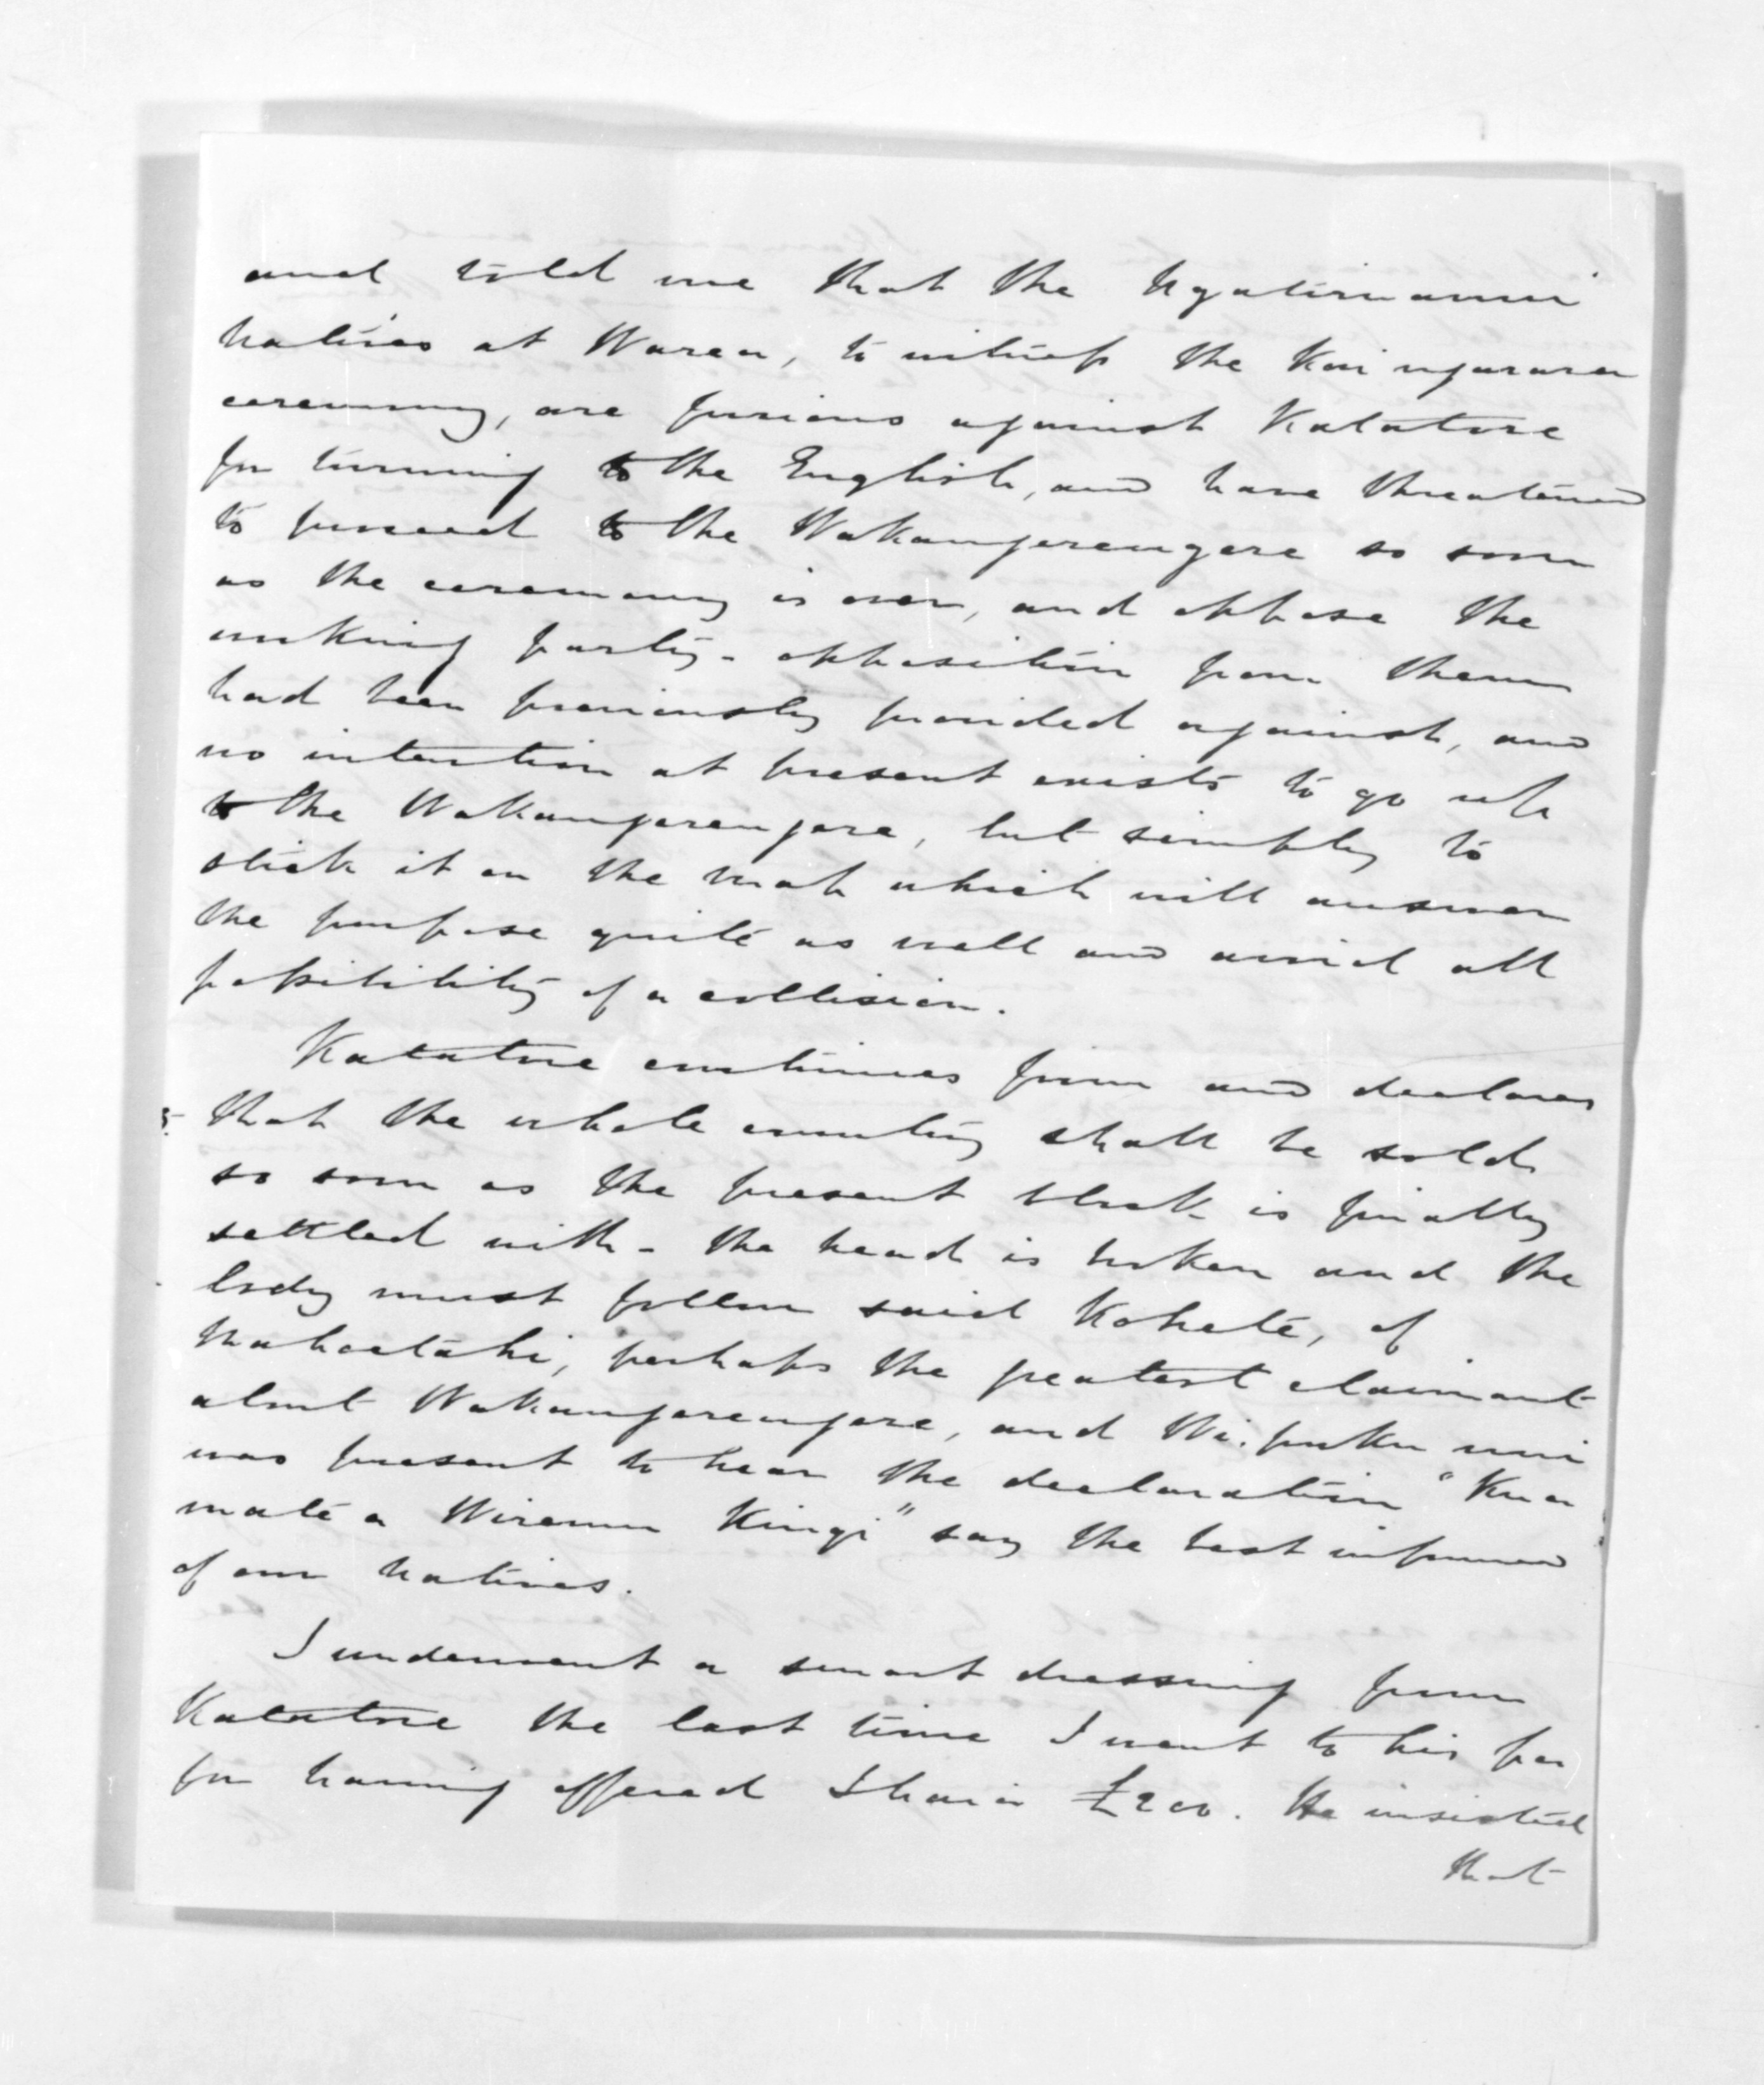 and told me that the Ngatiruanui
natives at Warea, to witness the Kai ngarara
ceremony, are furious against Katatore
for turning to the English, and have threatened
to proceed to the Wakangerengere so soon
as the ceremony is over, and oppose the
marking party - opposition from them
had been previously provided against, and
no intention at present exists to go up
to the Wakangerengere, but simply to
stick it on the map which will answer
the purpose quite as well and avoid all
possibility of a collision.
Katatore continues firm and declares
that the whole country shall be sold
so soon as the present block is finally
settled with - the head is broken and the
body must follow said Kohete, of
Mahoetahi, perhaps the greatest claimant
about Wakangerengere, and Wi. puku nui
was present to hear the declaration "Kua
mate a Wiremu Kingi" say the best informed
of our natives.
I underwent a smart dressing from
Katatore the last time I went to his pa
for having offered Ihaia £200. He insisted
that